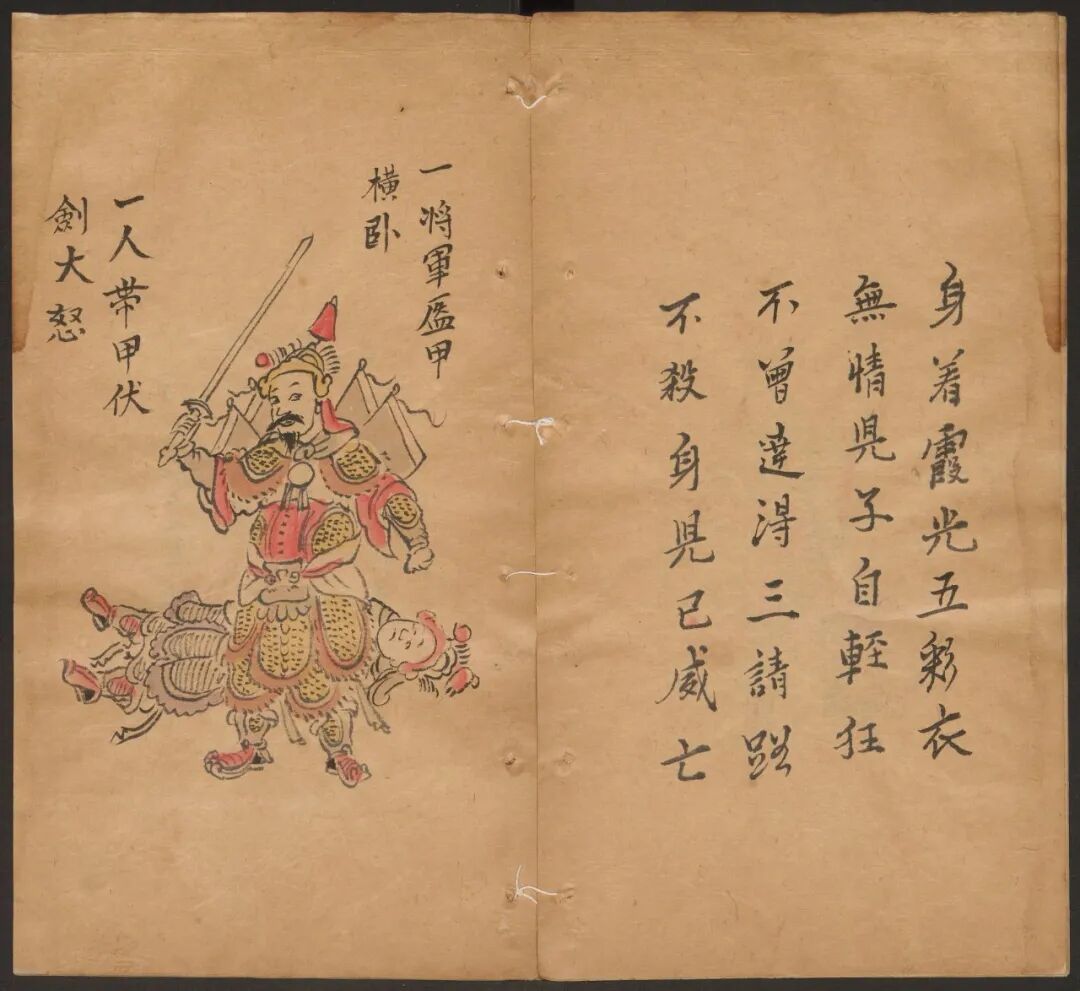 身着霞光五彩衣
無情児子自輕狂
不曾達淂三請路
不殺身児已威亡
一将軍盔甲
橫卧
一人带甲伏
劍大怒